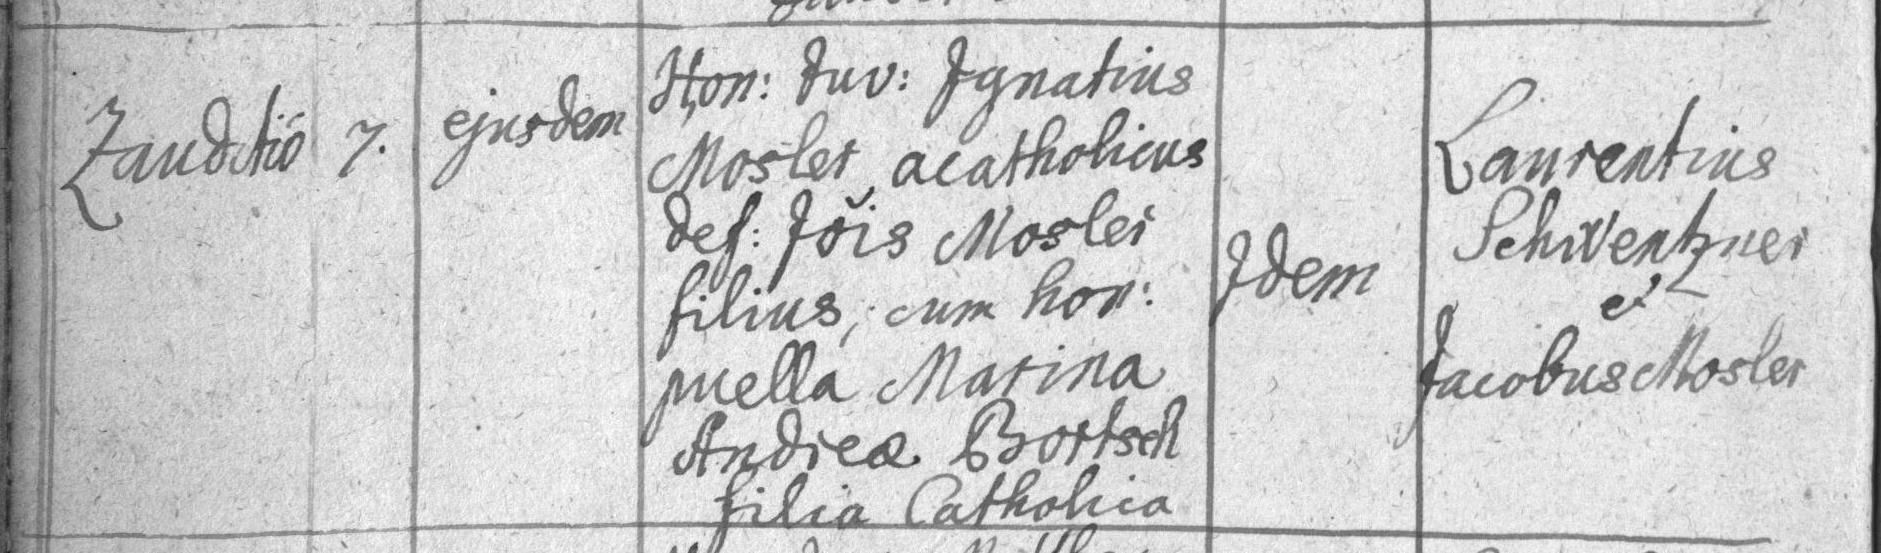 Zauditio 7. ejusdem
Hon: Juv: Ignatius
Mosler acatholicus
def: Jõis Mosler
filius, cum hon:
puella Marina
Andreæ Bortsch
filia Catholica
Idem
Laurentius
Schwentzner
et
Jacobus Mosler